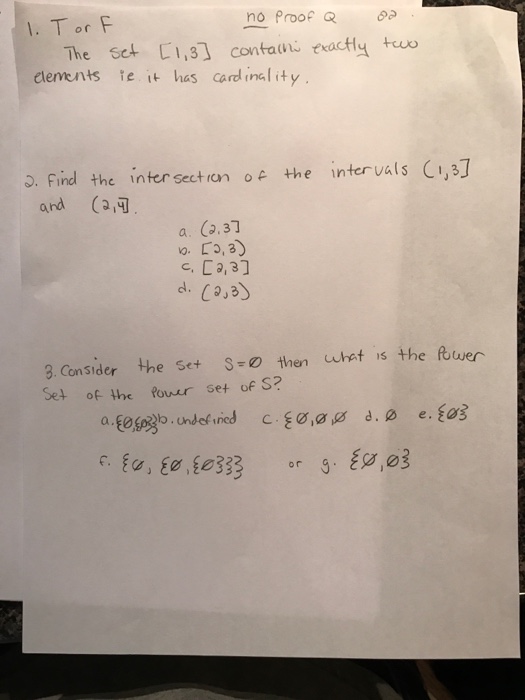 no Proof Q
1. T or F
The set [1,3] contains exactly two
elements ie it has cardinality.
2. Find the intersection of the intervals (1,3]
and (2,4].
a. (2,3]
b. [2,3)
c. [2,3]
d. (2,3)
3. Consider the set S=∅ then what is the Power
Set of the Power set of S?
a. {∅{∅}} b. undefined c. {∅,∅,∅ d. ∅ e. {∅}
f. {∅, {∅,{∅}}} or g. {∅,∅}